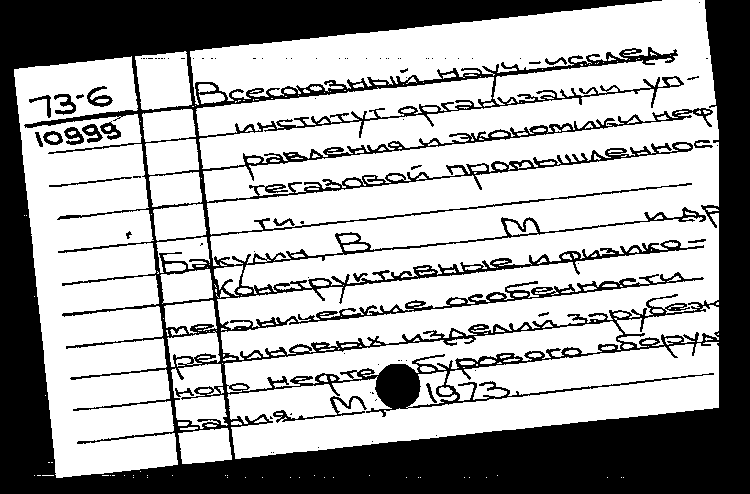 73-6
10999
Всесоюзный науч.-исслед.
институт организации, уп-
равления и экономики неф-
тегазовой промышленнос-
ти.
Бакулин, В М и др
Конструктивные и физико-
механические особенности
резиновых изделий зарубеж
ного нефте бурового оборудо
вания. М., 1973.